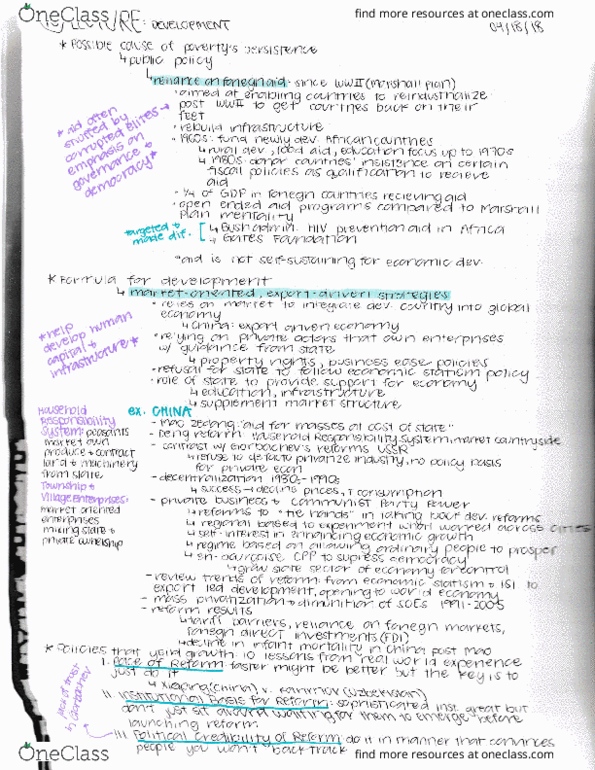 OneClass
find more resources at oneclass.com
LECTURE: DEVELOPMENT
04/18/18
* Possible cause of poverty's persistence
↳ public policy
↳ reliance on foreign aid - since WWII (Marshall plan)
· aimed at enabling countries to reindustrialize
post WWII to get countries back on their
feet
· rebuild infrastructure
· 1960s: fund newly dev. African countries
↳ rural dev., food aid, education focus up to 1970s
↳ 1980s: donor countries' insistence on certain
fiscal policies as qualification to recieve
aid
· 1/4 of GDP in foreign countries recieving aid
· open ended aid programs compared to Marshall
plan mentality
↳ Bush admin. HIV prevention aid in Africa
↳ Gates Foundation
*aid is not self-sustaining for economic dev.
*aid often
by
corrupted elites →
emphasis on
governance +
democracy*
targeted +
made dif.
* Formula for development
↳ market-oriented, export-driven strategies
· relies on market to integrate dev. country into global
economy
↳ China: export driven economy
· relying on private actors that own enterprises
w/ guidance from state
↳ property rights, business ease policies
· refusal for state to follow economic statism policy
· role of state to provide support for economy
↳ education, infrastructure
↳ supplement market structure
*help
develop human
capital +
infrastructure*
ex. CHINA
- Mao Zedong: "aid for masses at cost of state"
- Deng reform: Household Responsibility System, market countryside
- contrast w/ Gorbachev's reforms USSR
↳ refuse to defacto privatize industry, no policy basis
for private econ
- decentralization 1980s-1990s
↳ success → decline prices, ↑ consumption
- private business + Communist Party Power
↳ reforms to "tie hands" in taking back dev. reforms
↳ regional based to experiment what worked across cities
↳ self-interest in enhancing economic growth
↳ regime based on allowing ordinary people to prosper
↳ CPP to supress democracy
↳ grow state sector of economy for control
- review trends of reform: from economic statism + ISI to
export led development, opening to world economy
- mass privatization + diminution of SOEs 1991-2005
- reform results
↳ tariff barriers, reliance on foreign markets,
foreign direct investments (FDI)
↳ decline in infant mortality in China post Mao
Household
Responsibility
System: peasants
market own
produce + contract
land + machinery
from state
Township +
Village Enterprises:
market oriented
enterprises
mixing state +
private ownership
* Policies that yield growth: 10 lessons from real world experience
I. Pace of Reform: faster might be better but the key is to
just do it
↳ Xiaoping (China) v. Karimov (Uzbekistan)
II. Institutional Basis for Reform: sophisticated inst. great but
don't just sit around waiting for them to emerge before
launching reform
III. Political Credibility of Reform: do it in manner that convinces
people you won't back track
lack of trust
in Gorbachev
OneClass
find more resources at oneclass.com